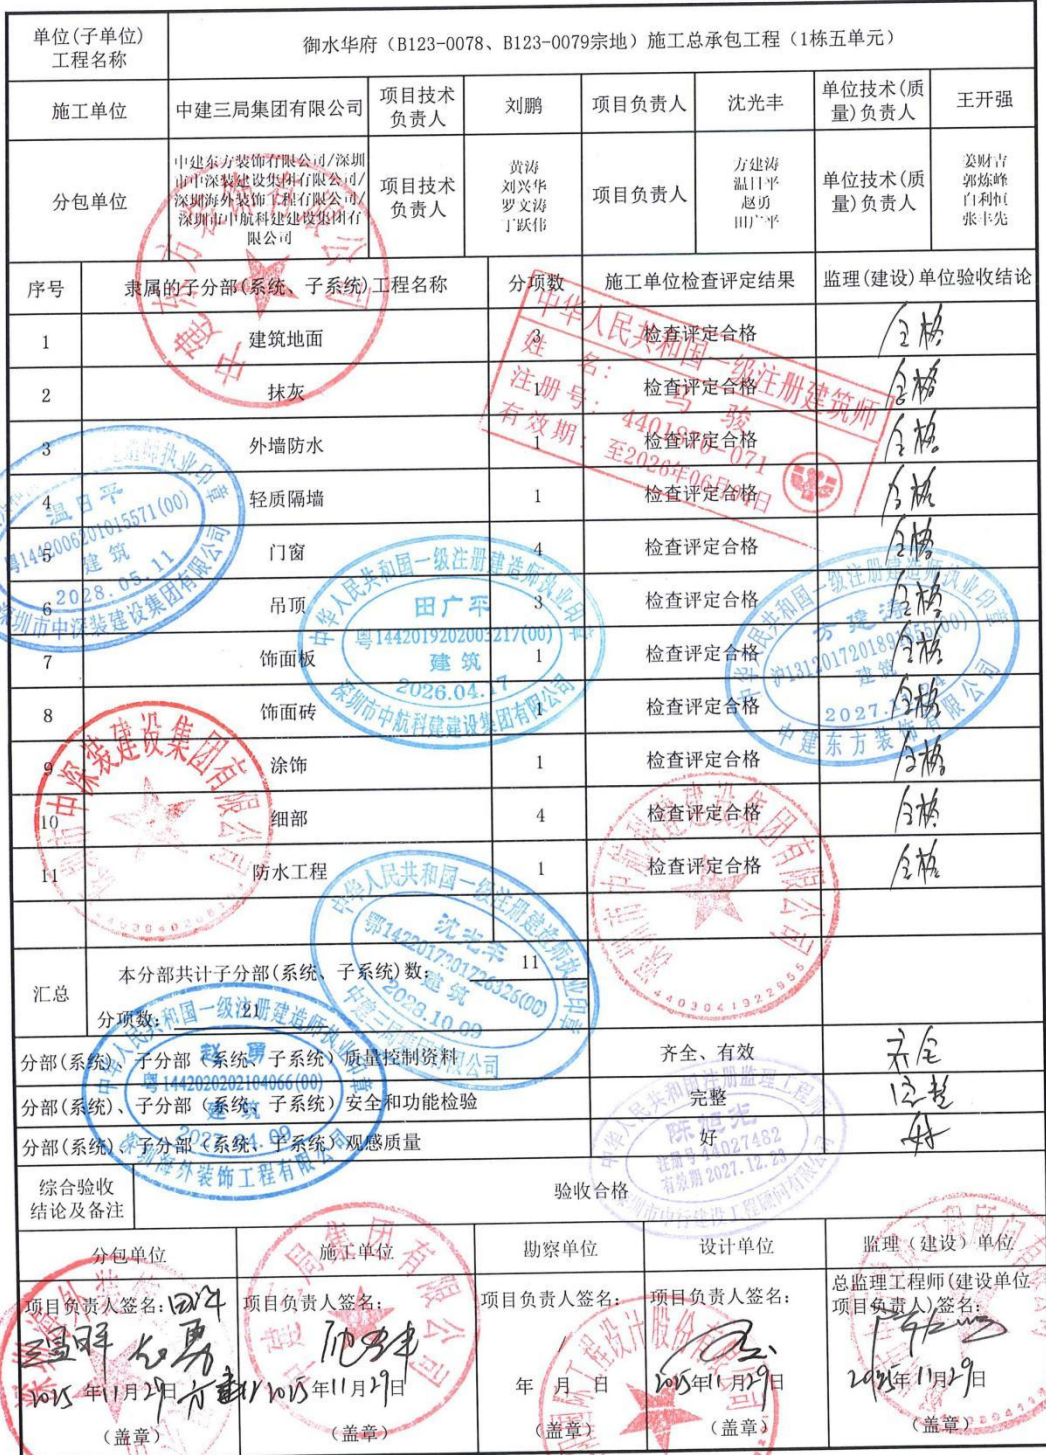 单位(子单位)
工程名称
御水华府（B123-0078、B123-0079宗地）施工总承包工程（1栋五单元）
施工单位
中建三局集团有限公司
项目技术
负责人
刘鹏
项目负责人
沈光丰
单位技术(质
量)负责人
王开强
分包单位
中建东方装饰有限公司/深圳
市中深装建设集团有限公司/
深圳海外装饰工程有限公司/
深圳市中航科建建设集团有
限公司
项目技术
负责人
黄涛
刘兴华
罗文涛
丁跃伟
项目负责人
方建涛
温日平
赵勇
田广平
单位技术(质
量)负责人
姜财吉
郭炼峰
白利恒
张丰先
序号
隶属的子分部(系统、子系统)工程名称
分项数
施工单位检查评定结果
监理(建设)单位验收结论
1 建筑地面 3 检查评定合格 合格
2 抹灰 1 检查评定合格 合格
3 外墙防水 1 检查评定合格 合格
4 轻质隔墙 1 检查评定合格 合格
5 门窗 4 检查评定合格 合格
6 吊顶 3 检查评定合格 合格
7 饰面板 1 检查评定合格 合格
8 饰面砖 1 检查评定合格 合格
9 涂饰 1 检查评定合格 合格
10 细部 4 检查评定合格 合格
11 防水工程 1 检查评定合格 合格
汇总
本分部共计子分部(系统、子系统)数: 11
分项数: 21
分部(系统)、子分部（系统、子系统）质量控制资料 齐全、有效 齐全
分部(系统)、子分部（系统、子系统）安全和功能检验 完整 完整
分部(系统)、子分部（系统、子系统）观感质量 好 好
综合验收
结论及备注
验收合格
分包单位
施工单位
勘察单位
设计单位
监理（建设）单位
项目负责人签名:
温日平 赵勇
2025年11月29日
（盖章）
项目负责人签名:
沈光丰
2025年11月29日
（盖章）
项目负责人签名:
年 月 日
项目负责人签名:
2025年11月29日
（盖章）
总监理工程师(建设单位
项目负责人)签名:
2025年11月29日
（盖章）
中建东方装饰有限公司
中华人民共和国一级注册建筑师
姓 名： 马 骏
注册号：
有效期：
温日平
粤1442006201015571(00)
建筑
2028.05.11
深圳市中深装建设集团有限公司
中华人民共和国一级注册建造师执业印章
田广平
粤1442019202003217(00)
建筑
2026.04.17
深圳市中航科建建设集团有限公司
中华人民共和国一级注册建造师执业印章
方建涛
建筑
中建东方装饰有限公司
深圳市中深装建设集团有限公司
深圳市中航科建建设集团有限公司
4403041922955
中华人民共和国一级注册建造师执业印章
沈光丰
鄂1422017201726326(00)
建筑
2028.10.09
中建三局集团有限公司
中华人民共和国一级注册建造师执业印章
赵勇
粤1442020202104066(00)
建筑
深圳海外装饰工程有限公司
中华人民共和国注册监理工程师
陈旭光
注册号44027482
有效期2027.12.23